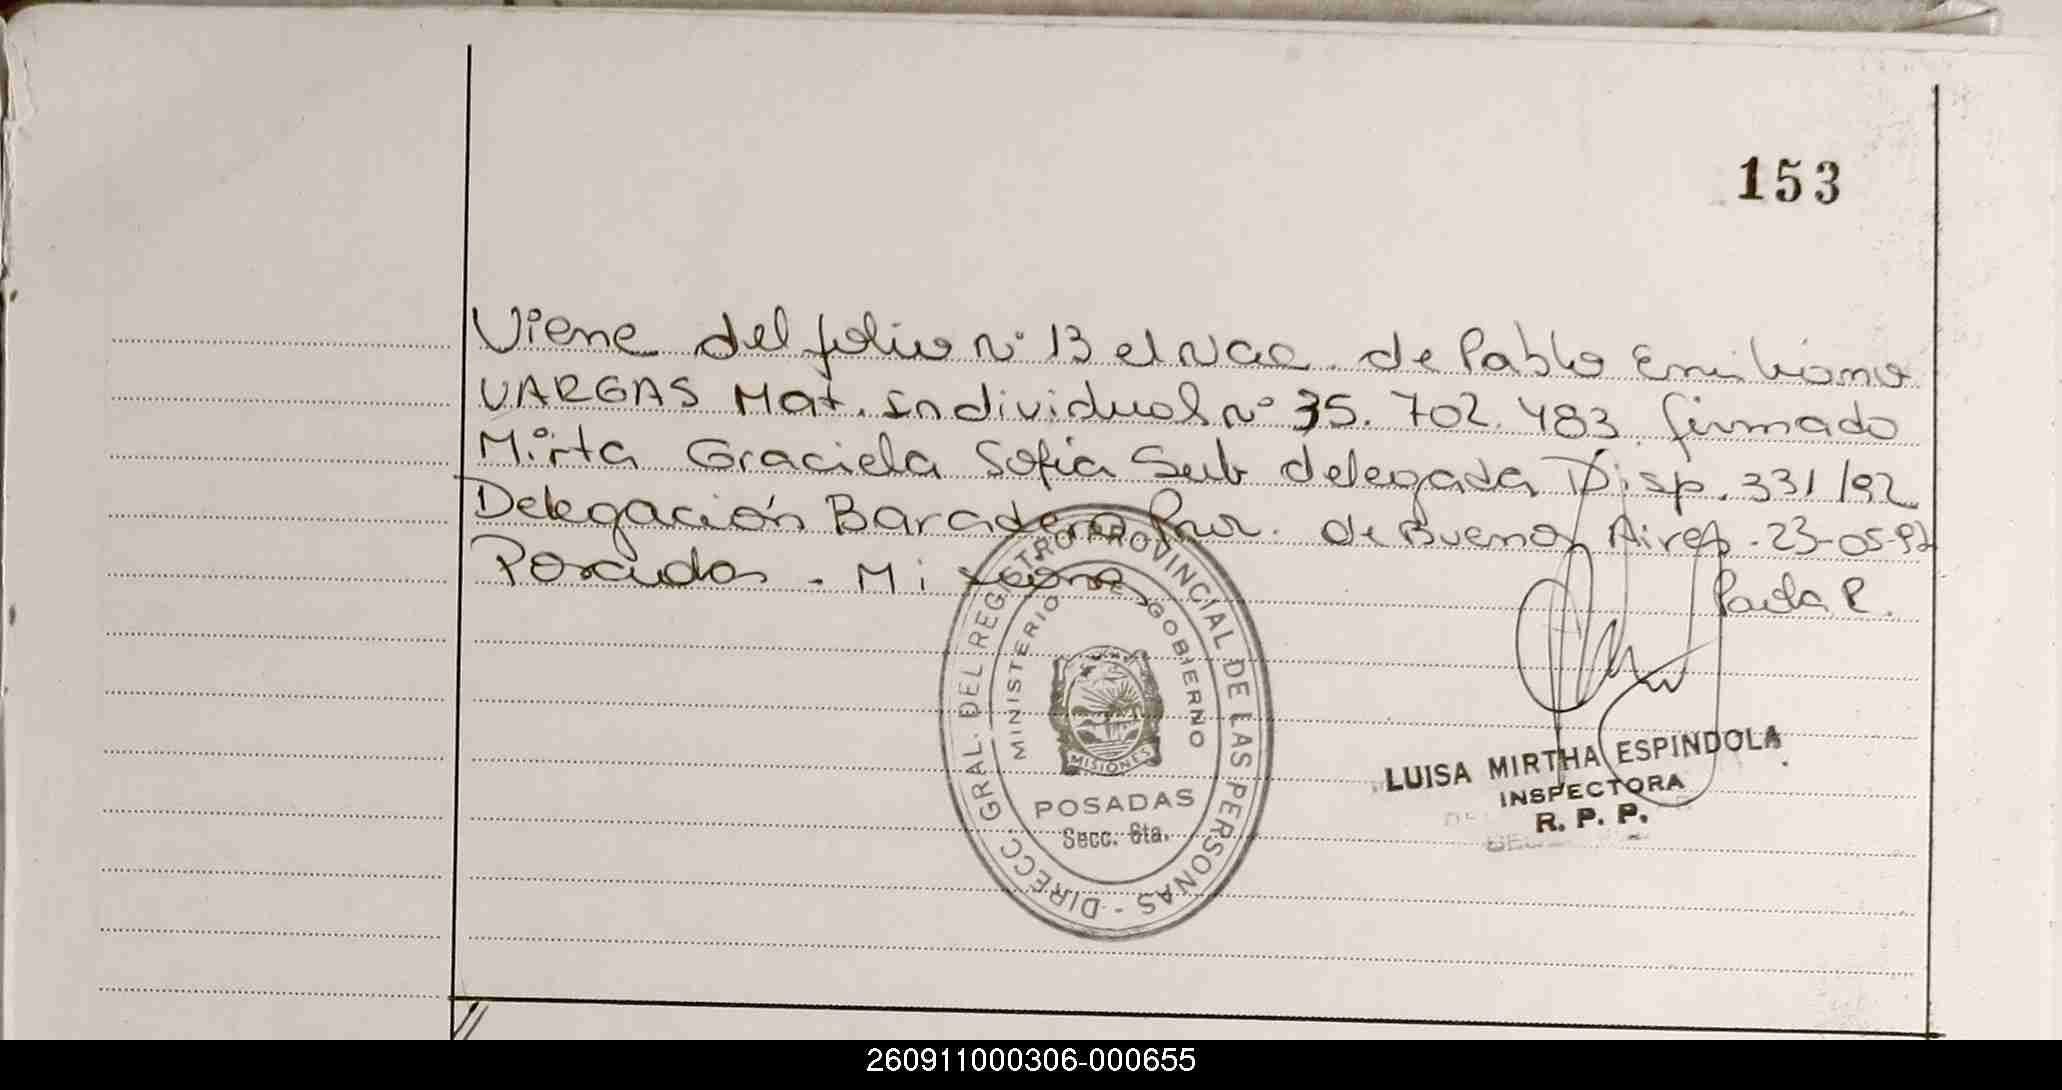 153
Viene del folio nº 13 el Nac. de Pablo Emiliano
VARGAS Mat. individual nº 35.702.483. firmado
Mirta Graciela Sofia Sub delegada Disp. 331/92
Delegación Baradero Prov. de Buenos Aires. 23-05-92
Posadas - Misiones
Paula R.
DIRECC. GRAL. DEL REGISTRO PROVINCIAL DE LAS PERSONAS -
MINISTERIO DE GOBIERNO
MISIONES
POSADAS
Secc. 6ta.
LUISA MIRTHA ESPINDOLA
INSPECTORA
R. P. P.
260911000306-000655